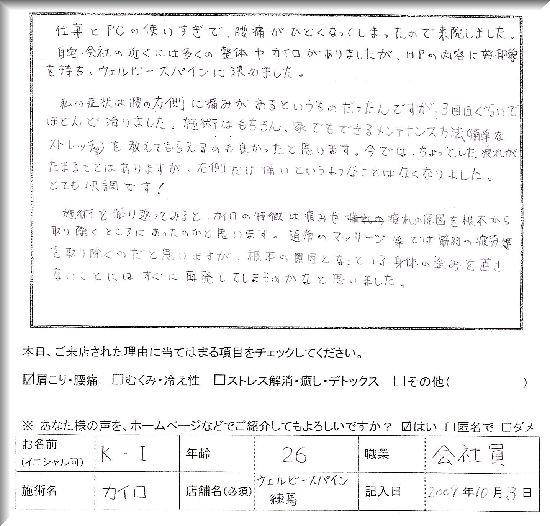 仕事とPCの使いすぎで、腰痛がひどくなってしまったので来院しました。
自宅・会社の近くには多くの整体やカイロがありましたが、HPの内容に好印象
を持ち、ウェルビースパインに決めました。
私の症状は腰の左側に痛みがあるというものだったんですが、3回近くらいで
ほとんど治りました。施術はもちろん、家でもできるメンテナンス方法(簡単な
ストレッチ)を教えてもらえるのも良かったと思います。今では、ちょっとした疲れが
たまることはありますが、左側だけ痛いというようなことはなくなりました。
とても快調です!
施術を振り返ってみると、カイロの特徴は痛みや疲れの原因を根本から
取り除くところにあったのかと思います。通常のマッサージ等では筋肉の疲労感
を取り除くのだと思いますが、根本の原因となっている身体の歪みを直さ
ないことにはすぐに再発してしまうのかなと思いました。
本日、ご来店された理由に当てはまる項目をチェックしてください。
☑肩こり・腰痛 □むくみ・冷え性 □ストレス解消・癒し・デトックス □その他( )
※ あなた様の声を、ホームページなどでご紹介してもよろしいですか? ☑はい □匿名で □ダメ
お名前(イニシャル可) K-I 年齢 26 職業 会社員
施術名 カイロ 店舗名(必須) ウェルビースパイン 練馬 記入日 2009年10月3日